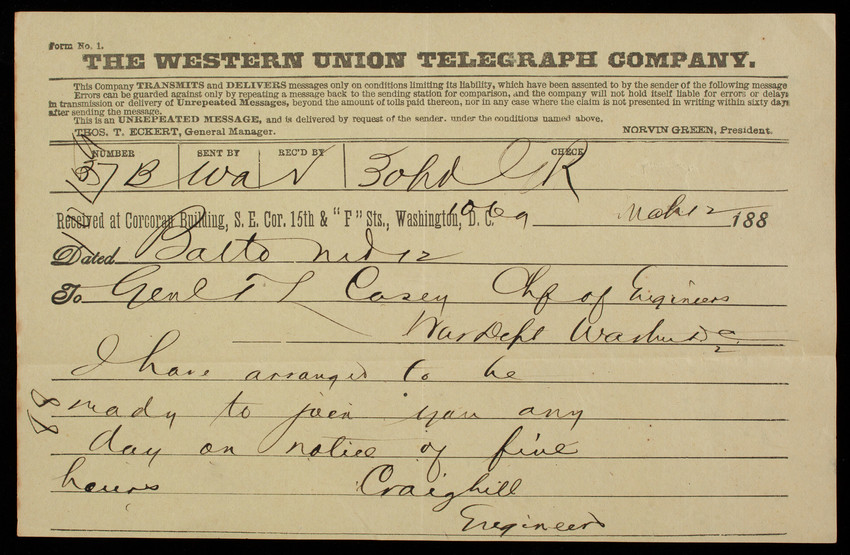 Form No. 1.
THE WESTERN UNION TELEGRAPH COMPANY.
This Company TRANSMITS and DELIVERS messages only on conditions limiting its liability, which have been assented to by the sender of the following message
Errors can be guarded against only by repeating a message back to the sending station for comparison, and the company will not hold itself liable for errors or delays
in transmission or delivery of Unrepeated Messages, beyond the amount of tolls paid thereon, nor in any case where the claim is not presented in writing within sixty days
after sending the message.
This is an UNREPEATED MESSAGE, and is delivered by request of the sender. under the conditions named above.
THOS. T. ECKERT, General Manager. NORVIN GREEN, President.
NUMBER SENT BY REC'D BY CHECK
37 B Wa
Received at Corcoran Building, S. E. Cor. 15th & "F" Sts., Washington, D. C. 12 188
Dated Balto Md 12
To Genl T L Casey Chf of Engineers
War Dept Washn DC
I have arranged to be
ready to join you any
day on notice of five
hours Craighill
Engineers